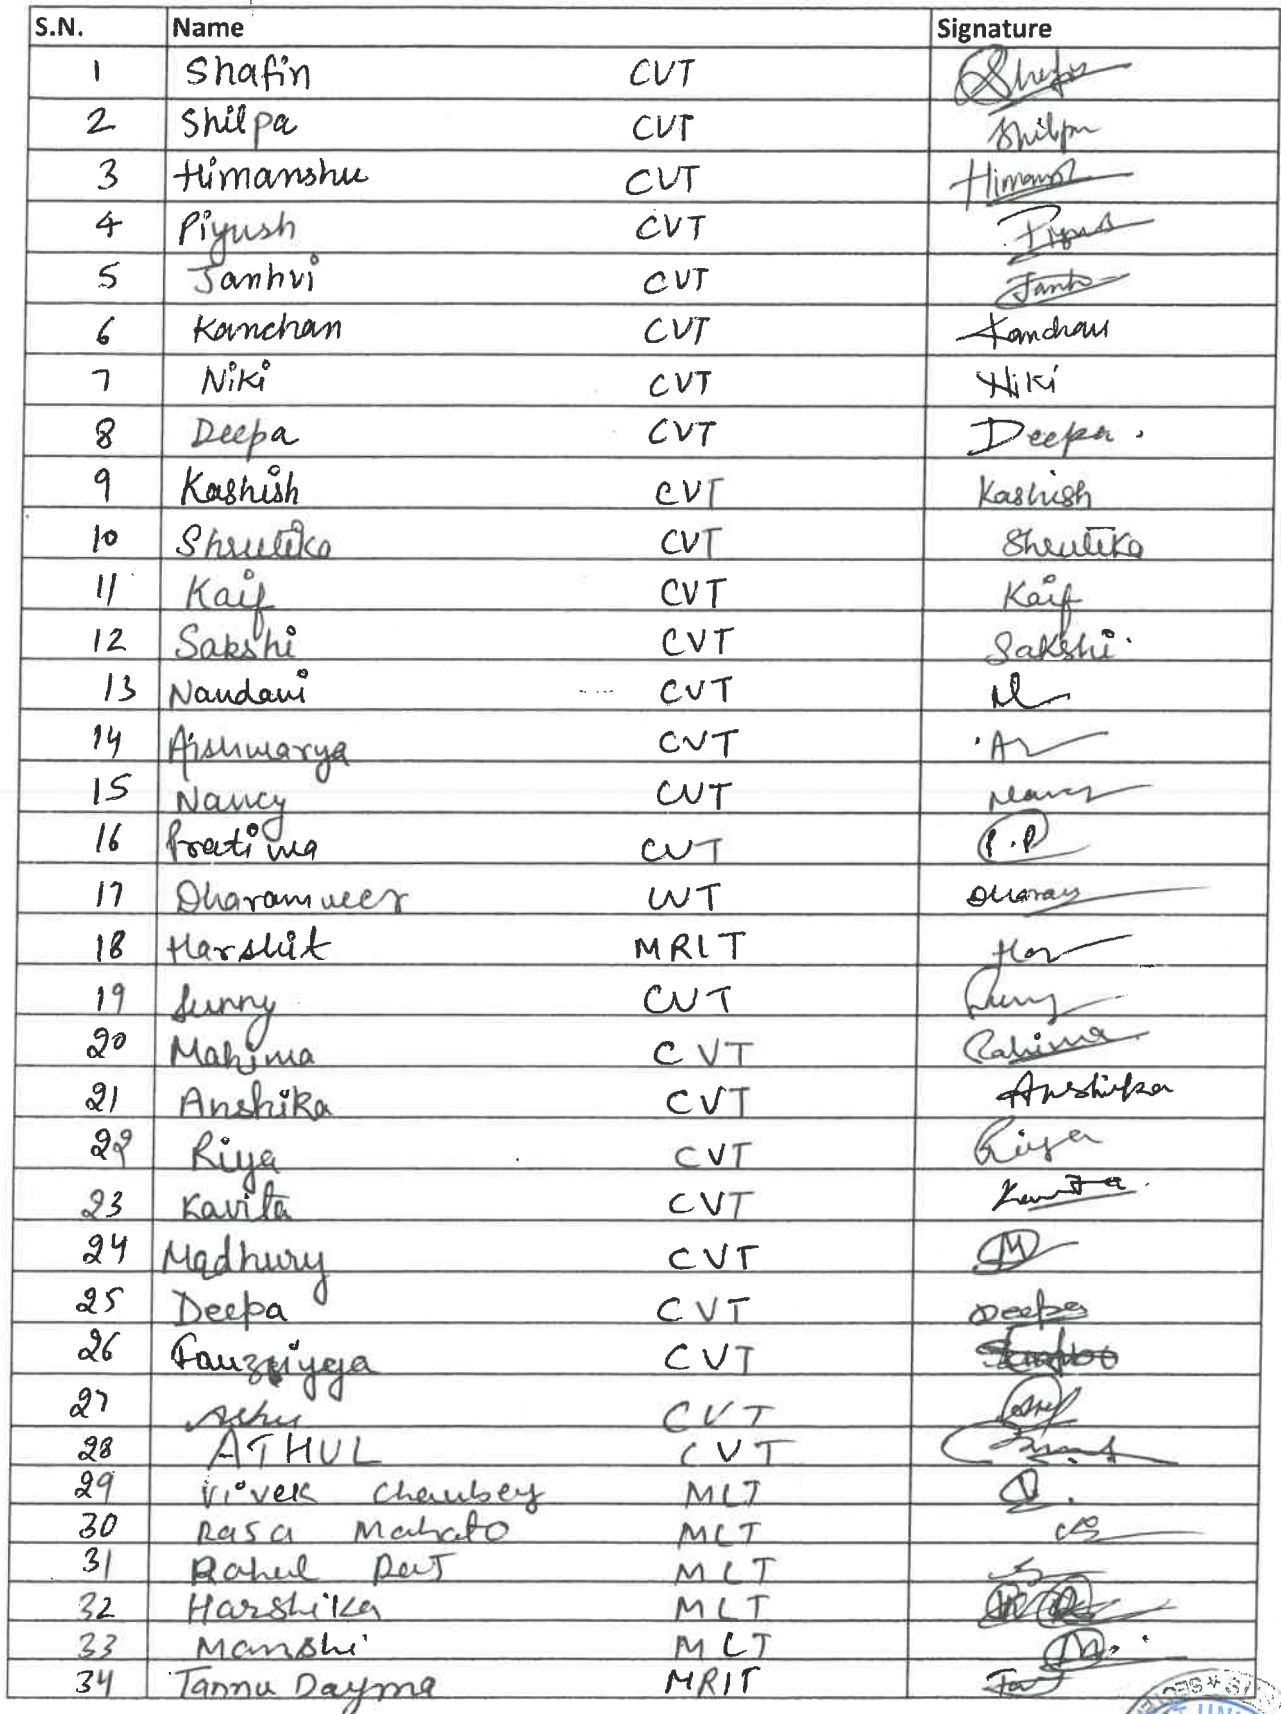 S.N. Name Signature
1 Shafin CVT Shafin
2 Shilpa CVT Shilpa
3 Himanshu CVT Himansh
4 Piyush CVT Piyush
5 Janhvi CVT Janh
6 Kanchan CVT Kanchan
7 Niki CVT Niki
8 Deepa CVT Deepa.
9 Kashish CVT Kashish
10 Shrutika CVT Shrutika
11 Kaif CVT Kaif
12 Sakshi CVT Sakshi
13 Nandani CVT
14 Aishwarya CVT
15 Nancy CVT Nancy
16 Pratima CVT P.P
17 Dharamveer CVT Dharam
18 Harshit MRIT Har
19 Sunny CVT Sunny
20 Mahima CVT Mahima
21 Anshika CVT Anshika
22 Riya CVT Riya
23 Kavita CVT Kavita
24 Madhury CVT M
25 Deepa CVT Deepa
26 Fauziyya CVT
27 Ashu CVT
28 ATHUL CVT
29 Vivek Chaubey MLT
30 Mahato MLT
31 Rahul Raj MLT
32 Harshika MLT
33 Manshi MLT
34 Tannu Dayma MRIT